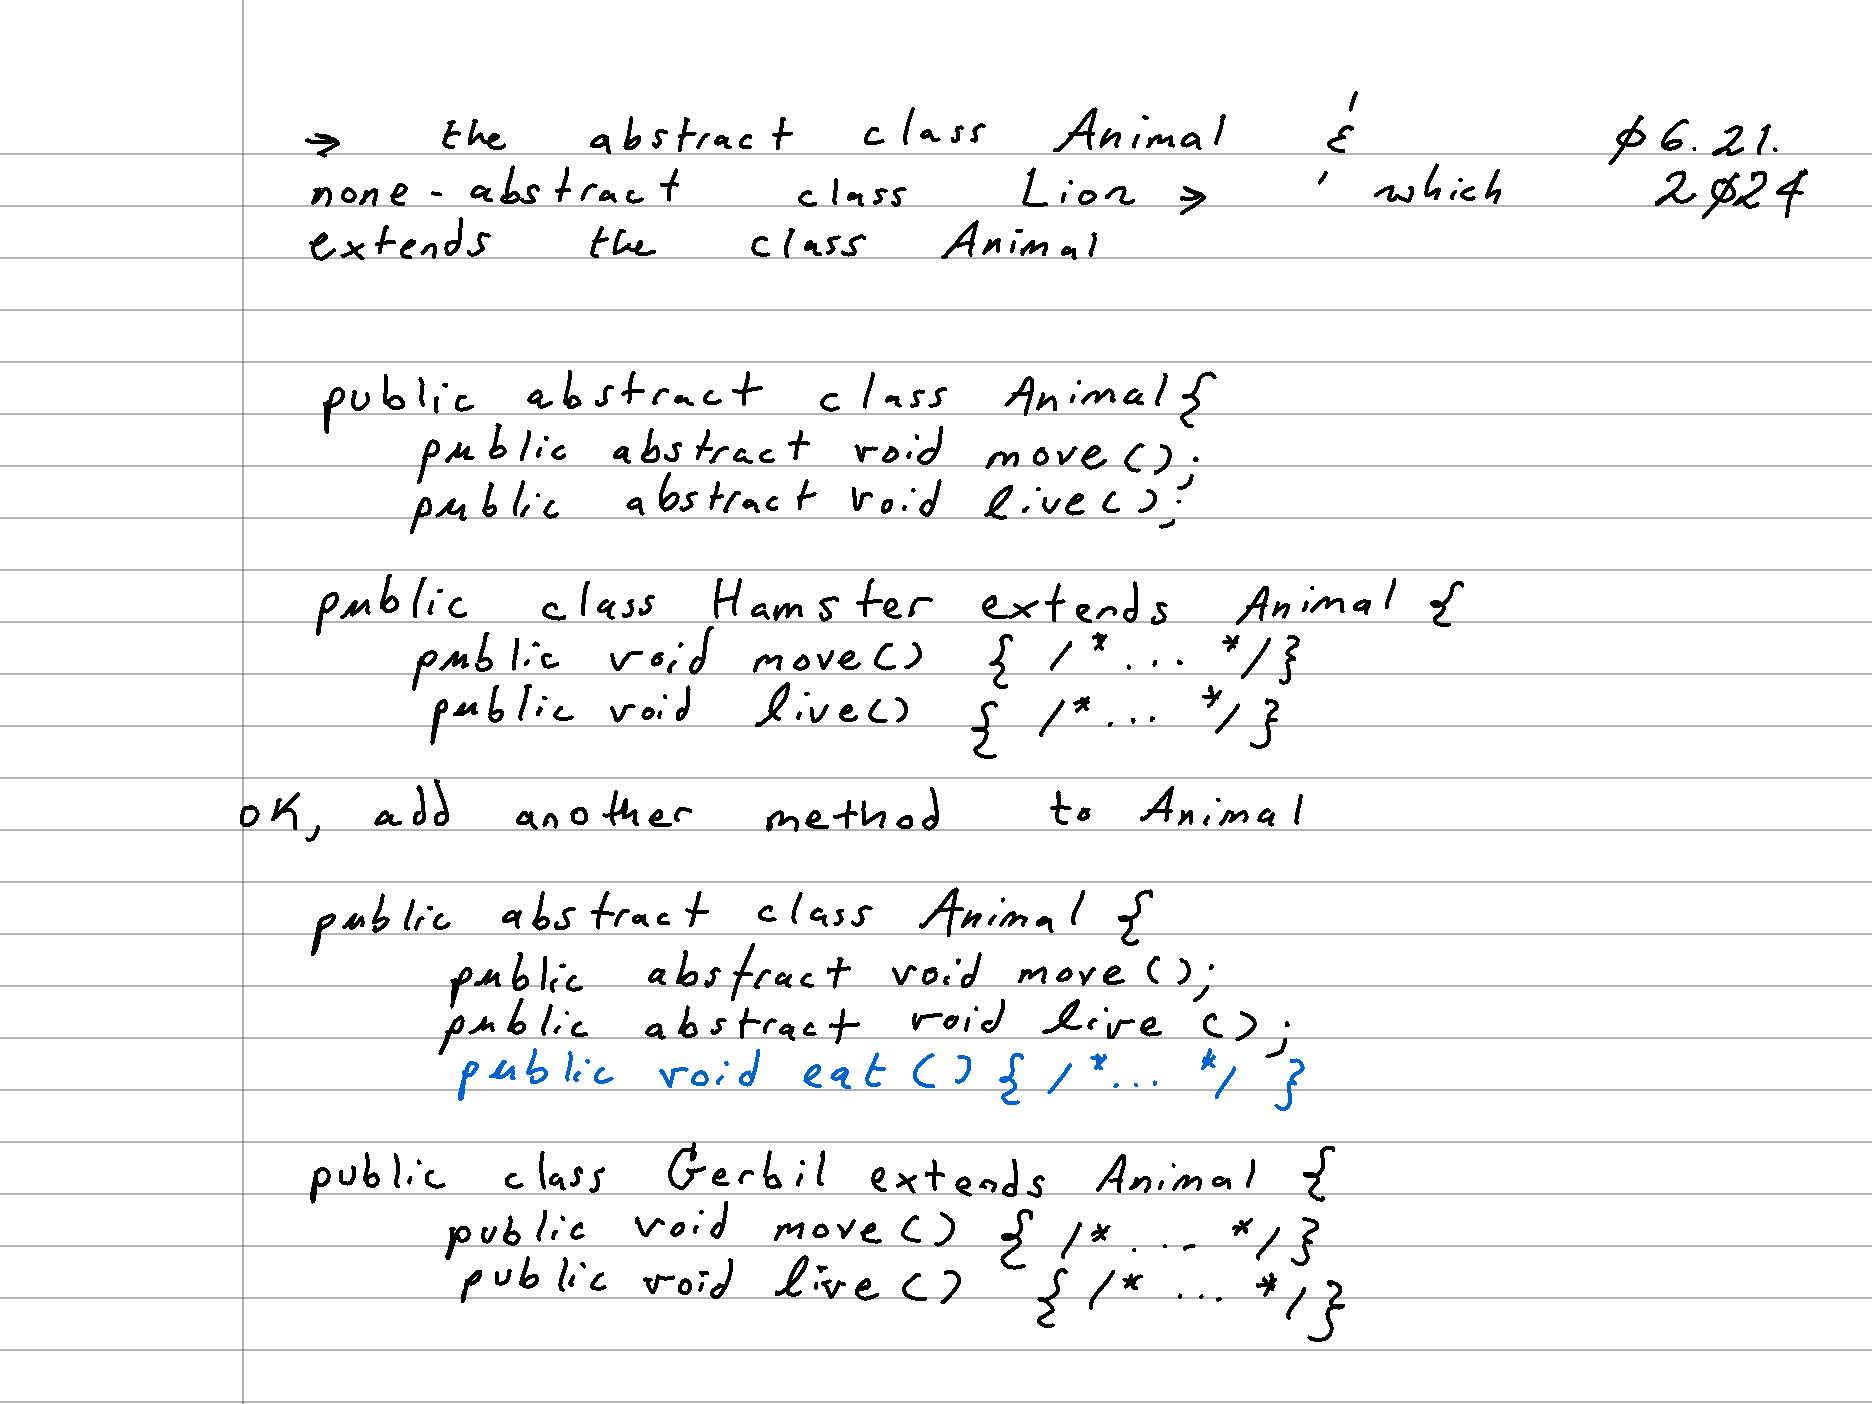 → the abstract class Animal & Ø6.21.
none-abstract class Lion → ' which 2Ø24
extends the class Animal
public abstract class Animal{
public abstract void move();
public abstract void live();
public class Hamster extends Animal {
public void move() { /*... */}
public void live() { /*... */}
OK, add another method to Animal
public abstract class Animal {
public abstract void move();
public abstract void live ();
public void eat () { /*... */ }
public class Gerbil extends Animal {
public void move () { /*... */}
public void live () { /* ... */}